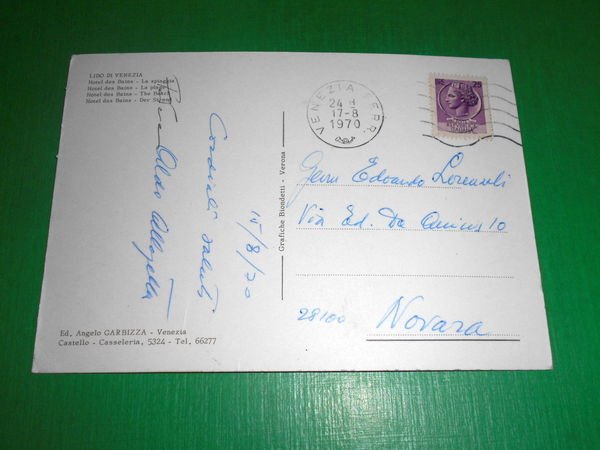 LIDO DI VENEZIA
Hotel des Bains - La spiaggia
Hotel des Bains - La plage
Hotel des Bains - The Beach
Hotel des Bains - Der Strand
Cordiali saluti
15/8/70
Aldo
Grafiche Biondetti - Verona
VENEZIA FERR.
24 H
17-8
1970
25
Geom Edoardo
Via Ed. De Amicis 10
28100 Novara
Ed, Angelo GARBIZZA - Venezia
Castello - Casseleria, 5324 - Tel, 66277